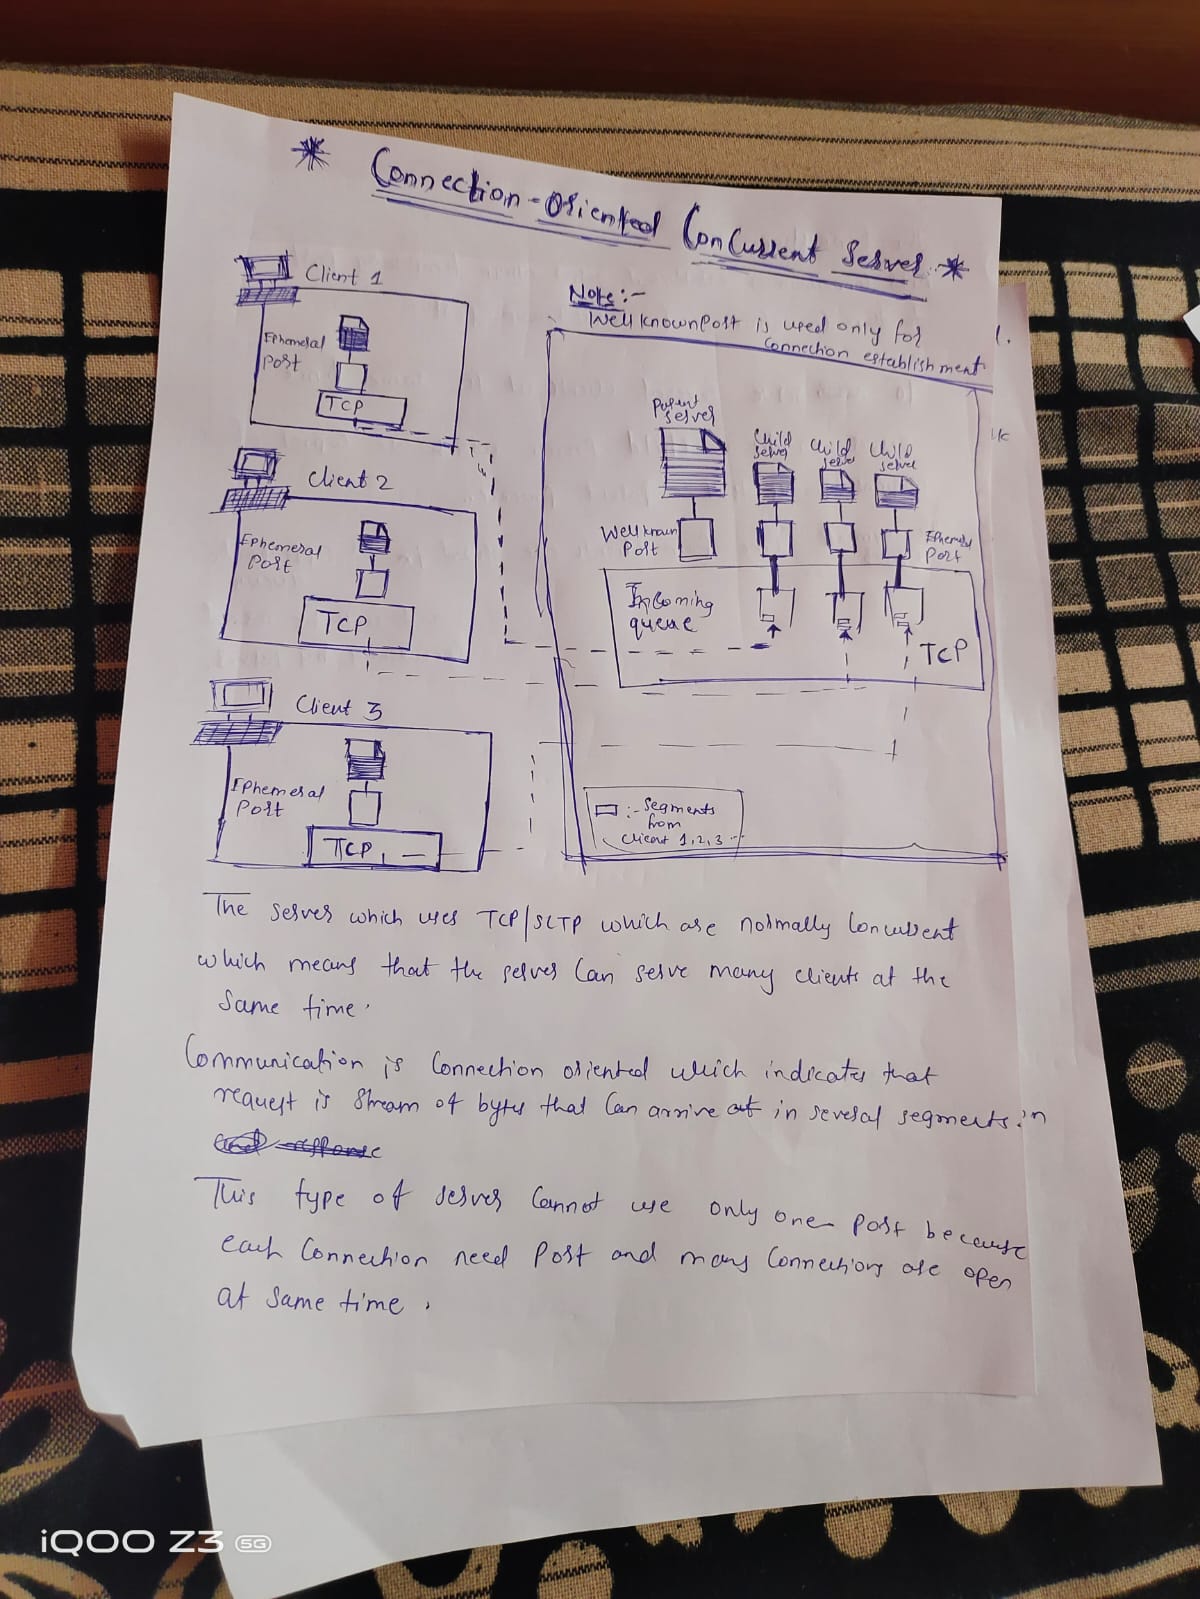 * Connection-Oriented Concurrent Server *
Client 1
Ephemeral
Port
TCP
Note:-
Wellknown Port is used only for
Connection establishment
1.
Client 2
Ephemeral
Port
TCP
Parent
Server
Child
Server
Child
Server
Child
Server
Wellknown
Port
Ephemeral
Port
Incoming
queue
TCP
Client 3
Ephemeral
Port
TCP
:- Segments
from
Client 1,2,3 --
The server which uses TCP/SCTP which are normally Concurrent
which means that the server Can serve many clients at the
Same time.
Communication is Connection oriented which indicates that
request is Stream of bytes that Can arrive at in several segments in
This type of server Cannot use only one Port because
each Connection need Port and many Connections are open
at Same time.
iQOO Z3 5G